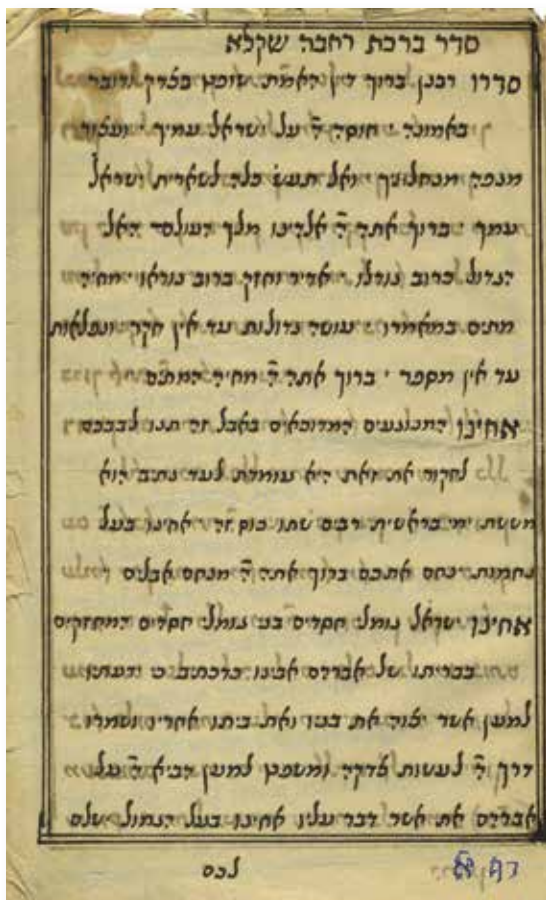 סדר ברכת רחבה שקלא
סדרו רבנן ברוך דיין האמת שופט בצדק ודובר
באמונה חוסה ה' על ישראל עמיך ועצור
מגפה מנחלתיך ואל תעש כלה לשארית ישראל
עמך ברוך אתה ה' אלהינו מלך העולם האל
הגדול ברוב גודלו אדיר וחזק ברוב נוראו מחיה
מתים במאמרו עושה גדולות עד אין חקר ונפלאות
עד אין מספר ברוך אתה ה' מחיה המתים
אחינו המיוגעים המדוכאים באבל זה תנו לבבכם
לחקור את זאת היא עומדת לעד נתיב הוא
מששת ימי בראשית רבים שתו כוס זה אחינו בעל
נחמות ינחם אתכם ברוך אתה ה' מנחם אבלים
אחינו ישראל גומלי חסדים בני גומלי חסדים המחזקים
בבריתו של אברהם אבינו כדכתיב כי ידעתיו
למען אשר יצוה את בניו ואת ביתו אחריו ושמרו
דרך ה' לעשות צדקה ומשפט למען הביא ה' על
אברהם את אשר דבר עליו אחינו בעל הגמול ישלם
לכם